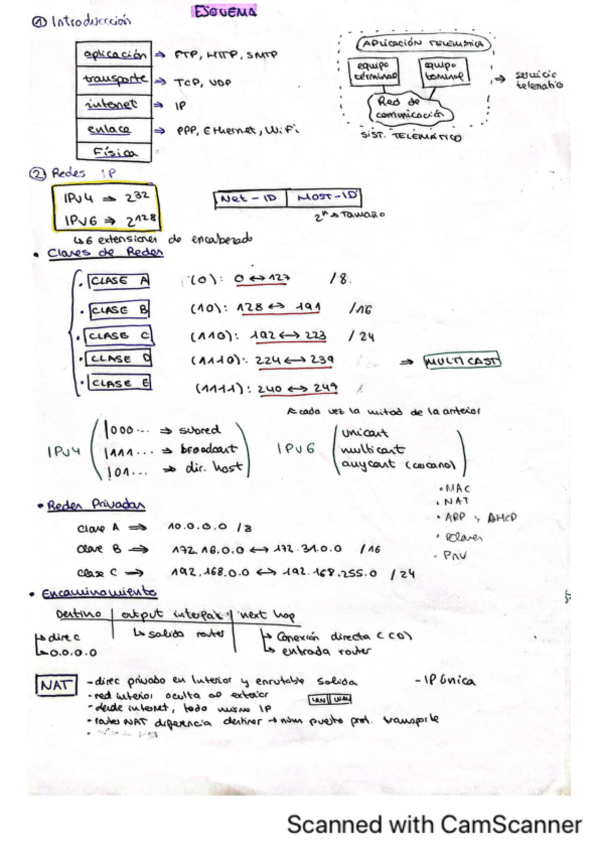 ESQUEMA
① Introducción
aplicación ⇒ FTP, HTTP, SMTP
transporte ⇒ TCP, UDP
internet ⇒ IP
enlace ⇒ PPP, Ethernet, WiFi
Física
APLICACIÓN TELEMÁTICA
equipo terminal
equipo terminal
Red de comunicación
SIST. TELEMÁTICO
→ servicio telematio
② Redes IP
IPv4 ⇒ 2^32
IPv6 ⇒ 2^128
↳ 6 extensiones de encabezado
Net-ID | HOST-ID
2^n → tamaño
• Clases de Redes
• CLASE A (0): 0 ↔ 127 /8
• CLASE B (10): 128 ↔ 191 /16
• CLASE C (110): 192 ↔ 223 /24
• CLASE D (1110): 224 ↔ 239 ⇒ MULTICAST
• CLASE E (1111): 240 ↔ 249
cada vez la mitad de la anterior
IPv4
1000... ⇒ subred
1111... ⇒ broadcast
101... ⇒ dir. host
IPv6
unicast
multicast
anycast (cercano)
• MAC
• NAT
• ARP y DHCP
• PNV
• Redes Privadas
Clase A ⇒ 10.0.0.0 /8
Clase B ⇒ 172.16.0.0 ↔ 172.31.0.0 /16
Clase C ⇒ 192.168.0.0 ↔ 192.168.255.0 /24
• Encaminamiento
Destino | output interfak | next hop
↳ direc
↳ 0.0.0.0
↳ salida router
↳ Conexión directa (CD)
↳ entrada router
NAT
- direc privado en Interior y enrutable salida
- IP única
- red interior oculta al exterior
LAN | WAN
- desde internet, todo mismo IP
- routers NAT diferencia destinos → núm puerto prot. transporte
Scanned with CamScanner